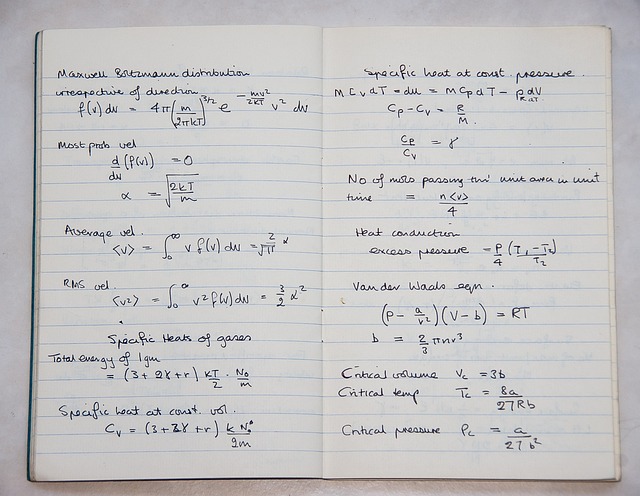 Maxwell Boltzmann distribution
irrespective of direction
f(v) dv = 4π (m/2πkT)^3/2 e^-mv²/2kT v² dv
Most prob vel
d/dv (f(v)) = 0
α = √(2kT/m)
Average vel.
<v> = ∫₀^∞ v f(v) dv = 2/√π α
RMS vel.
<v²> = ∫₀^∞ v² f(v) dv = 3/2 α²
Specific Heats of gases
Total energy of 1gm
= (3 + 2γ + r) kT/2 · N₀/m
Specific heat at const. vol.
Cv = (3 + 2γ + r) k N₀/2m
Specific heat at const. pressure.
M Cv dT = du = M Cp dT - p dV
R dT
Cp - Cv = R/M.
Cp/Cv = γ
No of mols passing thro' unit area in unit
time = n<v>/4
Heat conduction
excess pressure = P/4 (T₁ - T₂)/T₂
Van der Waals eqn.
(P - a/v²)(V - b) = RT
b = 2/3 πnr³
Critical volume Vc = 3b
Critical temp Tc = 8a/27Rb
Critical pressure Pc = a/27b²